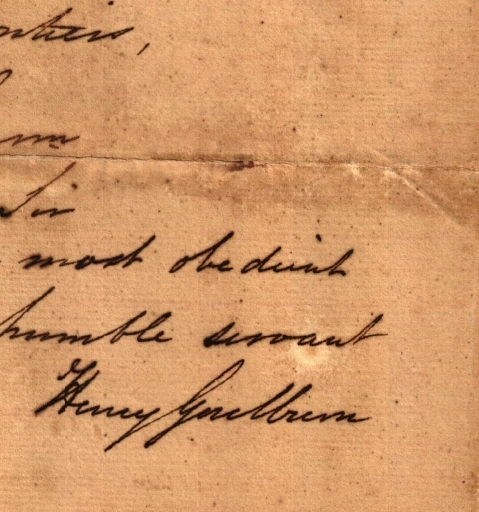 am
Sir
most obedient
humble servant
Henry Goulburn